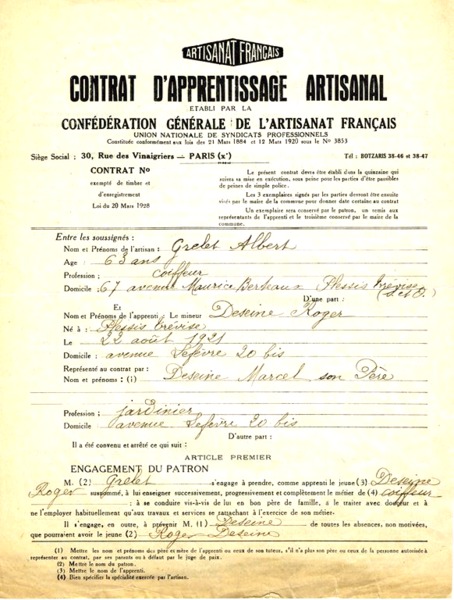 ARTISANAT FRANÇAIS
CONTRAT D'APPRENTISSAGE ARTISANAL
ETABLI PAR LA
CONFÉDÉRATION GÉNÉRALE DE L'ARTISANAT FRANÇAIS
UNION NATIONALE DE SYNDICATS PROFESSIONNELS
Constituée conformément aux lois des 21 Mars 1884 et 12 Mars 1920 sous le Nº 3853
Siège Social : 30, Rue des Vinaigriers — PARIS (Xᵉ) Tél : BOTZARIS 38-46 et 38-47
CONTRAT Nº
exempté de timbre et
d'enregistrement
Loi du 20 Mars 1928
Le présent contrat devra être établi dans la quinzaine qui
suivra sa mise en exécution, sous peine pour les parties d'être passibles
de peines de simple police.
Les 3 exemplaires signés par les parties devront être ensuite
visés par le maire de la commune pour donner date certaine au contrat
Un exemplaire sera conservé par le patron, un remis aux
représentants de l'apprenti et le troisième conservé par le maire de
la commune.
Entre les soussignés :
Nom et Prénoms de l'artisan : Grelet Albert
Age : 63 ans
Profession : Coiffeur
Domicile : 67 avenue Maurice Berteaux Plessis Trévise
(S. et O.)
D'une part :
Et
Nom et Prénoms de l'apprenti Le mineur Deseine Roger
Né à : Plessis Trévise
Le 22 août 1921
Domicile : avenue Lefèvre 20 bis
Représenté au contrat par :
Nom et prénoms : (1) Deseine Marcel son Père
Profession : jardinier
Domicile avenue Lefevre 20 bis
D'autre part :
Il a été convenu et arrêté ce qui suit :
ARTICLE PREMIER
ENGAGEMENT DU PATRON
M. (2) Grelet s'engage à prendre, comme apprenti le jeune (3) Deseine
Roger susnommé, à lui enseigner successivement, progressivement et complètement le métier de (4) coiffeur
; à se conduire vis-à-vis de lui en bon père de famille, à le traiter avec douceur et à
ne l'employer habituellement qu'aux travaux et services se rattachant à l'exercice de son métier.
Il s'engage, en outre, à prévenir M. (1) Deseine de toutes les absences, non motivées,
que pourraient avoir le jeune (2) Roger Deseine
(1) Mettre les nom et prénoms des père et mère de l'apprenti ou ceux de son tuteur, s'il n'a plus son père ou ceux de la personne autorisée à
représenter au contrat, par ses parents ou à défaut par le juge de paix.
(2) Mettre le nom du patron.
(3) Mettre le nom de l'apprenti.
(4) Bien spécifier la spécialité exercée par l'artisan.